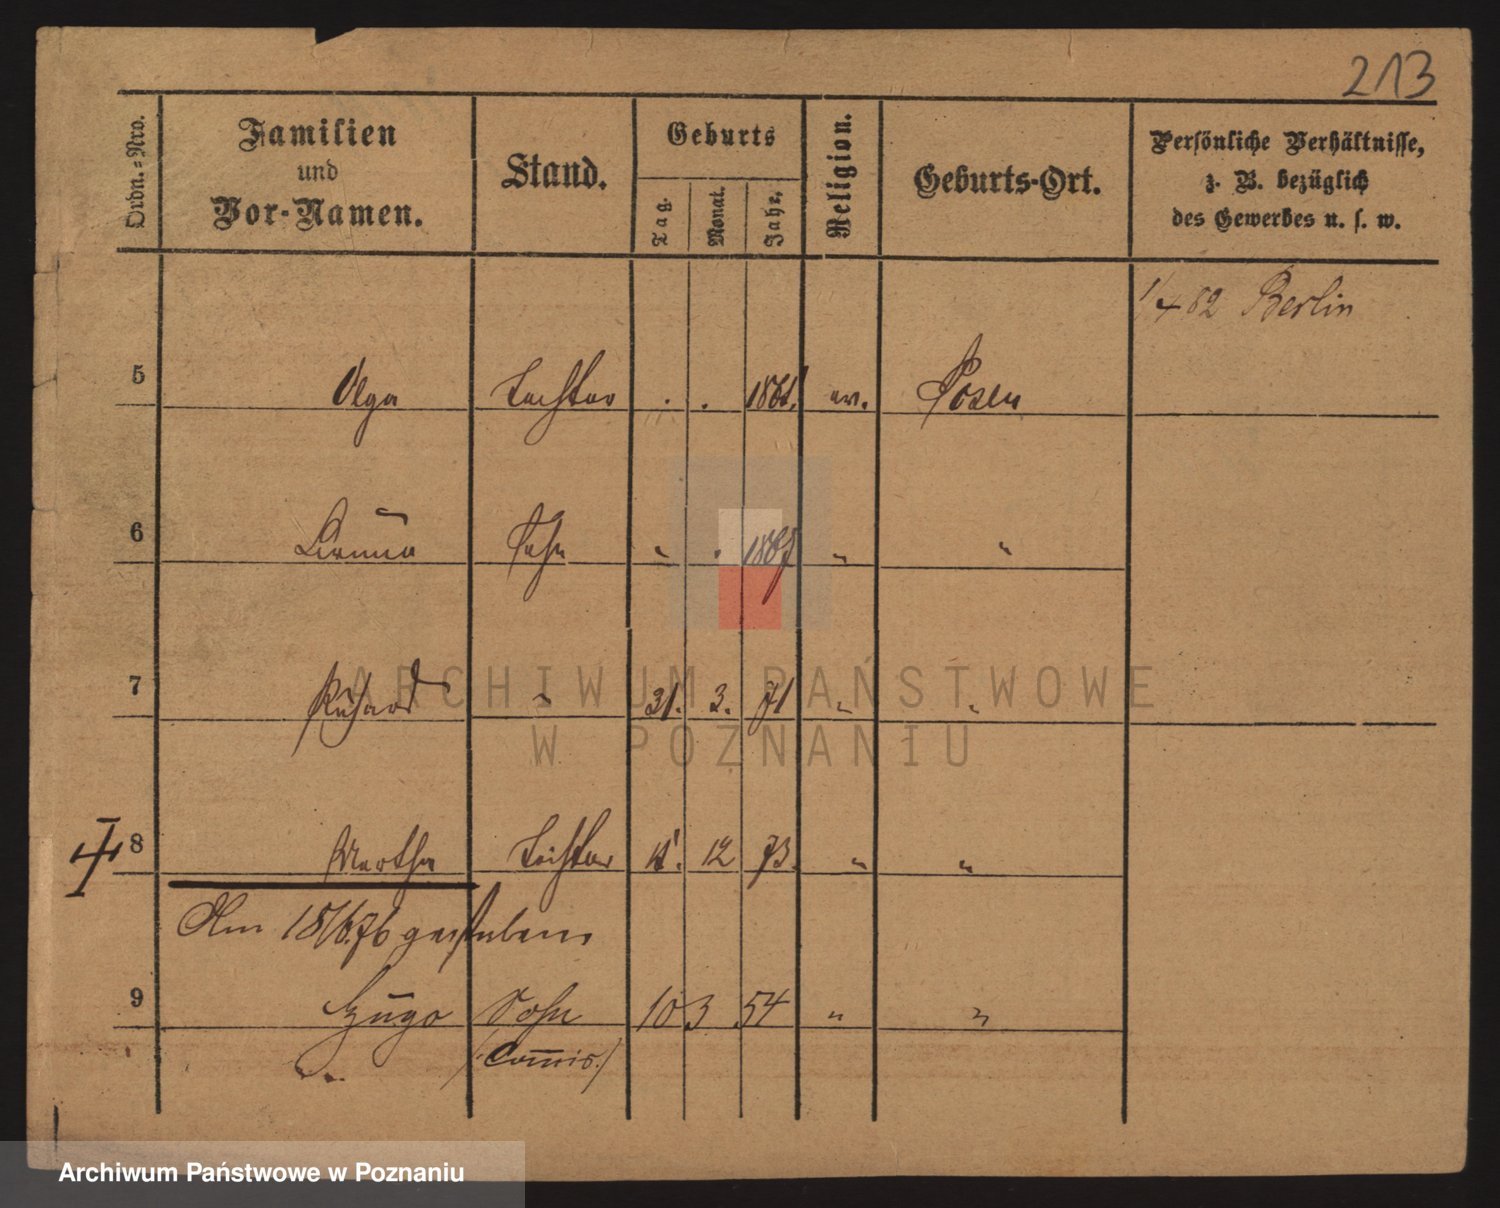 213
Ordn.-Nro.
Familien
und
Vor-Namen.
Stand.
Geburts
Tag.
Monat.
Jahr.
Religion.
Geburts-Ort.
Persönliche Verhältnisse,
z. B. bezüglich
des Gewerbes u. s. w.
1/4 82 Berlin
5 Olga Tochter . . 1861. ev. Posen
6 Sohn " . " "
7 Richard " 31. 3. 71 " "
8 Martha Tochter 12 73. " "
Am 18/6.76 gestorben
9 Hugo Sohn 10 3 54 " "
/:Commis:/
ARCHIWUM PAŃSTWOWE
W POZNANIU
Archiwum Państwowe w Poznaniu